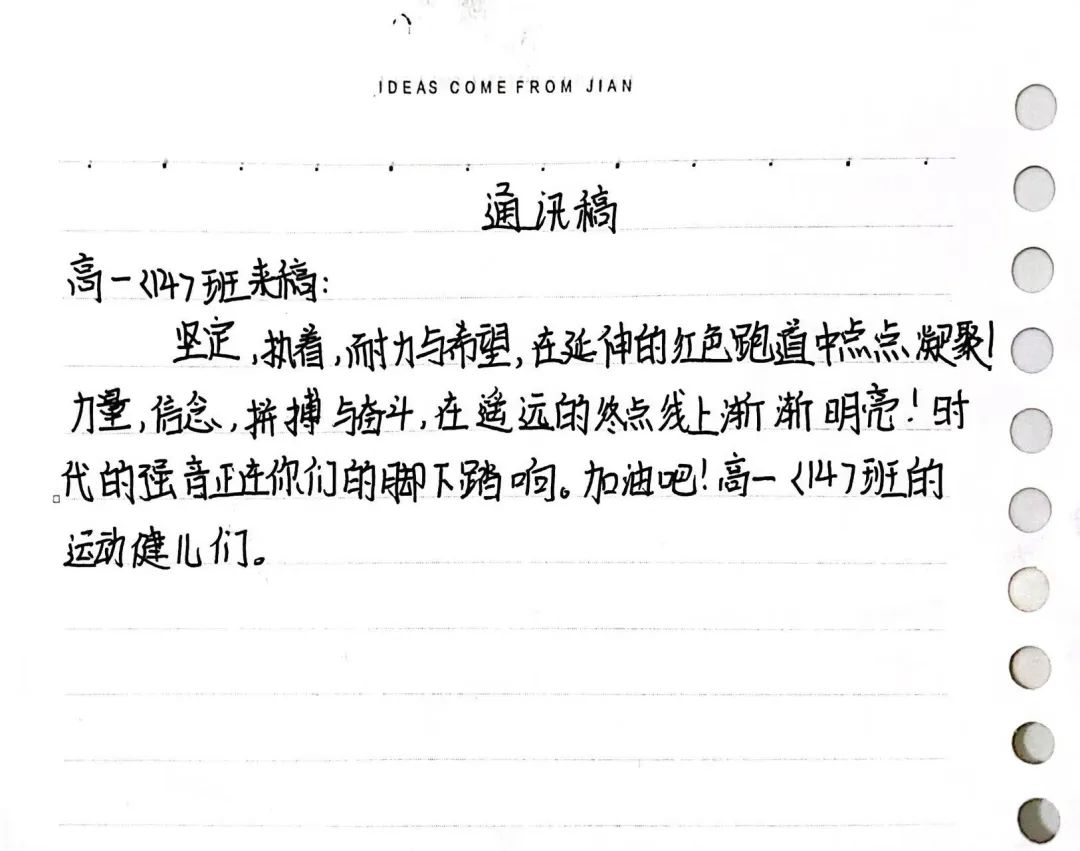 IDEAS COME FROM JIAN
通讯稿
高一<14>班来稿:
坚定,执着,耐力与希望,在延伸的红色跑道中点点凝聚!
力量,信念,拼搏与奋斗,在遥远的终点线上渐渐明亮!时
代的强音正在你们的脚下踏响。加油吧!高一<14>班的
运动健儿们。